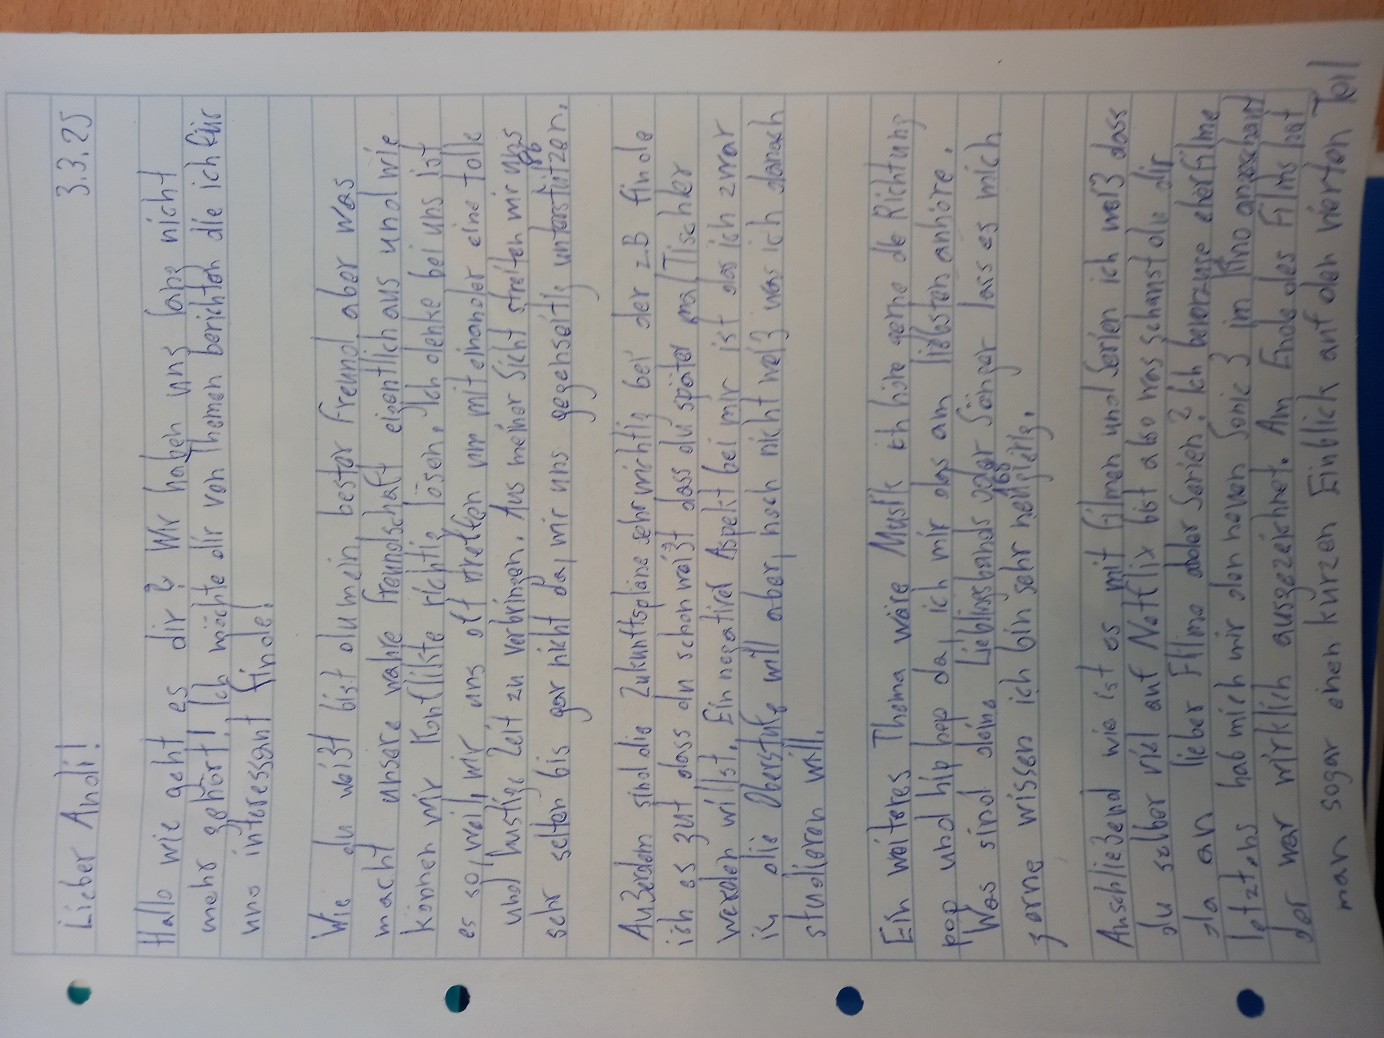 Lieber Andi! 3.3.25
Hallo wie geht es dir? Wir haben uns lang nicht
mehr gehört! Ich möchte dir von Themen berichten die ich für
uns interessant finde!
Wie du weißt bist du mein bester Freund aber was
macht unsere wahre Freundschaft eigentlich aus und wie
können wir Konflikte richtig lösen. Ich denke bei uns ist
es so, weil, wir uns oft treffen um miteinander eine tolle
und lustige Zeit zu verbringen. Aus meiner Sicht streiten wir uns
sehr selten bis gar nicht da, wir uns gegenseitig unterstützen.
Außerdem sind die Zukunftspläne sehr wichtig bei der z.B finde
ich es gut dass du schon weißt dass du später mal Tischler
werden willst. Ein negativer Aspekt bei mir ist das ich zwar
in die Oberstufe will aber, noch nicht weiß was ich danach
studieren will.
Ein weiteres Thema wäre Musik ich höre gerne de Richtung
pop und hip hop da ich mir das am liebsten anhöre.
Was sind deine Lieblingsbands oder Sänger lass es mich
gerne wissen ich bin sehr neugierig.
Anschließend wie ist es mit Filmen und Serien ich weiß dass
du selber viel auf Nettflix bist also was schaust du dir
da an lieber Filme oder Serien? Ich bevorzuge eher Filme
letztens hab mich mir den neuen Sonic 3 im Kino angeschaut
der war wirklich ausgezeichnet. Am Ende des Films hat
man sogar einen kurzen Einblick auf den vierten Teil